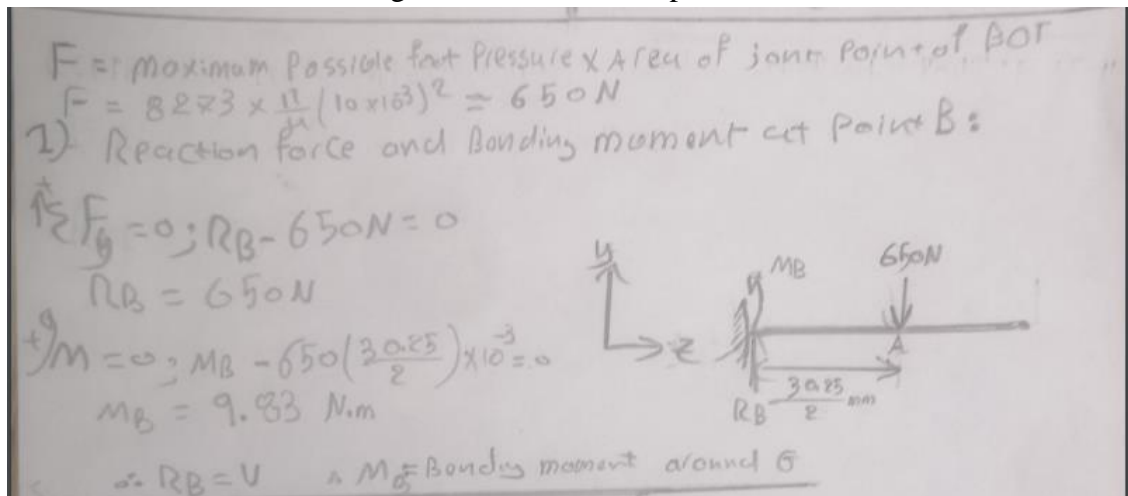 F = maximum Possible foot Pressure x Area of joint Point of BOT
F = 8273 x π/4 (10x10³)² = 650N
1) Reaction force and Bonding moment at Point B:
+↑ΣFy = 0; RB - 650N = 0
RB = 650N
+M = 0; MB - 650(30.25/2)x10⁻³ = 0
MB = 9.83 N.m
∴ RB = V ∴ M = Bonding moment around
y
z
MB
650N
A
30.25/2 mm
RB